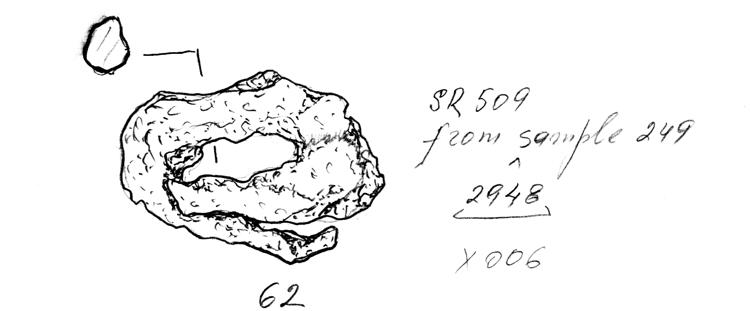 SR 509
from sample 249
2948
X006
62